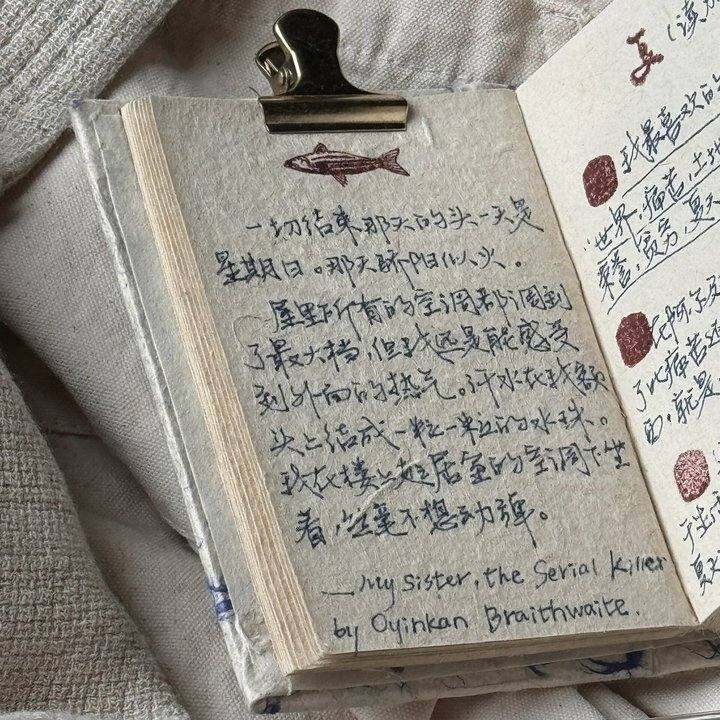 一切结束那天的头一天是
星期日。那天骄阳似火。
屋里所有的空调都调到
了最大档，但我还是能感受
到外面的热气。汗水在我额
头上结成一粒一粒的水珠。
我在楼上起居室的空调下坐
着，丝毫不想动弹。
—My sister, the Serial Killer
by Oyinkan Braithwaite.
（读
我最喜欢的
"世界，痛苦，土地
荣誉，贫穷，夏天
了此痛苦还
面，就是
于生
夏天